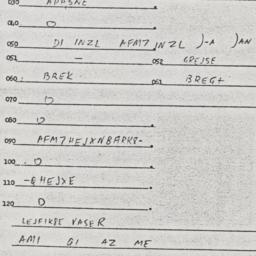 040 D
050 DI INZL AFM7 INZL )-A )AN
051 - 052 GREJSE
060. BREK 061 BREG+
070 D
080 D
090 AFM7HEJXNBARK8-
100. D
110 -& HEJXE
120 D
LEJFIKBE VASER
AMI GI AZ ME